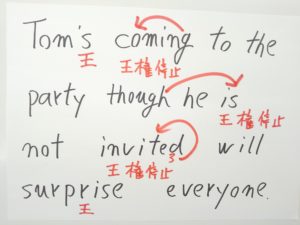 Tom's coming to the
王 王権停止
party though he is
王権停止
not invited will
王権停止
surprise everyone.
王